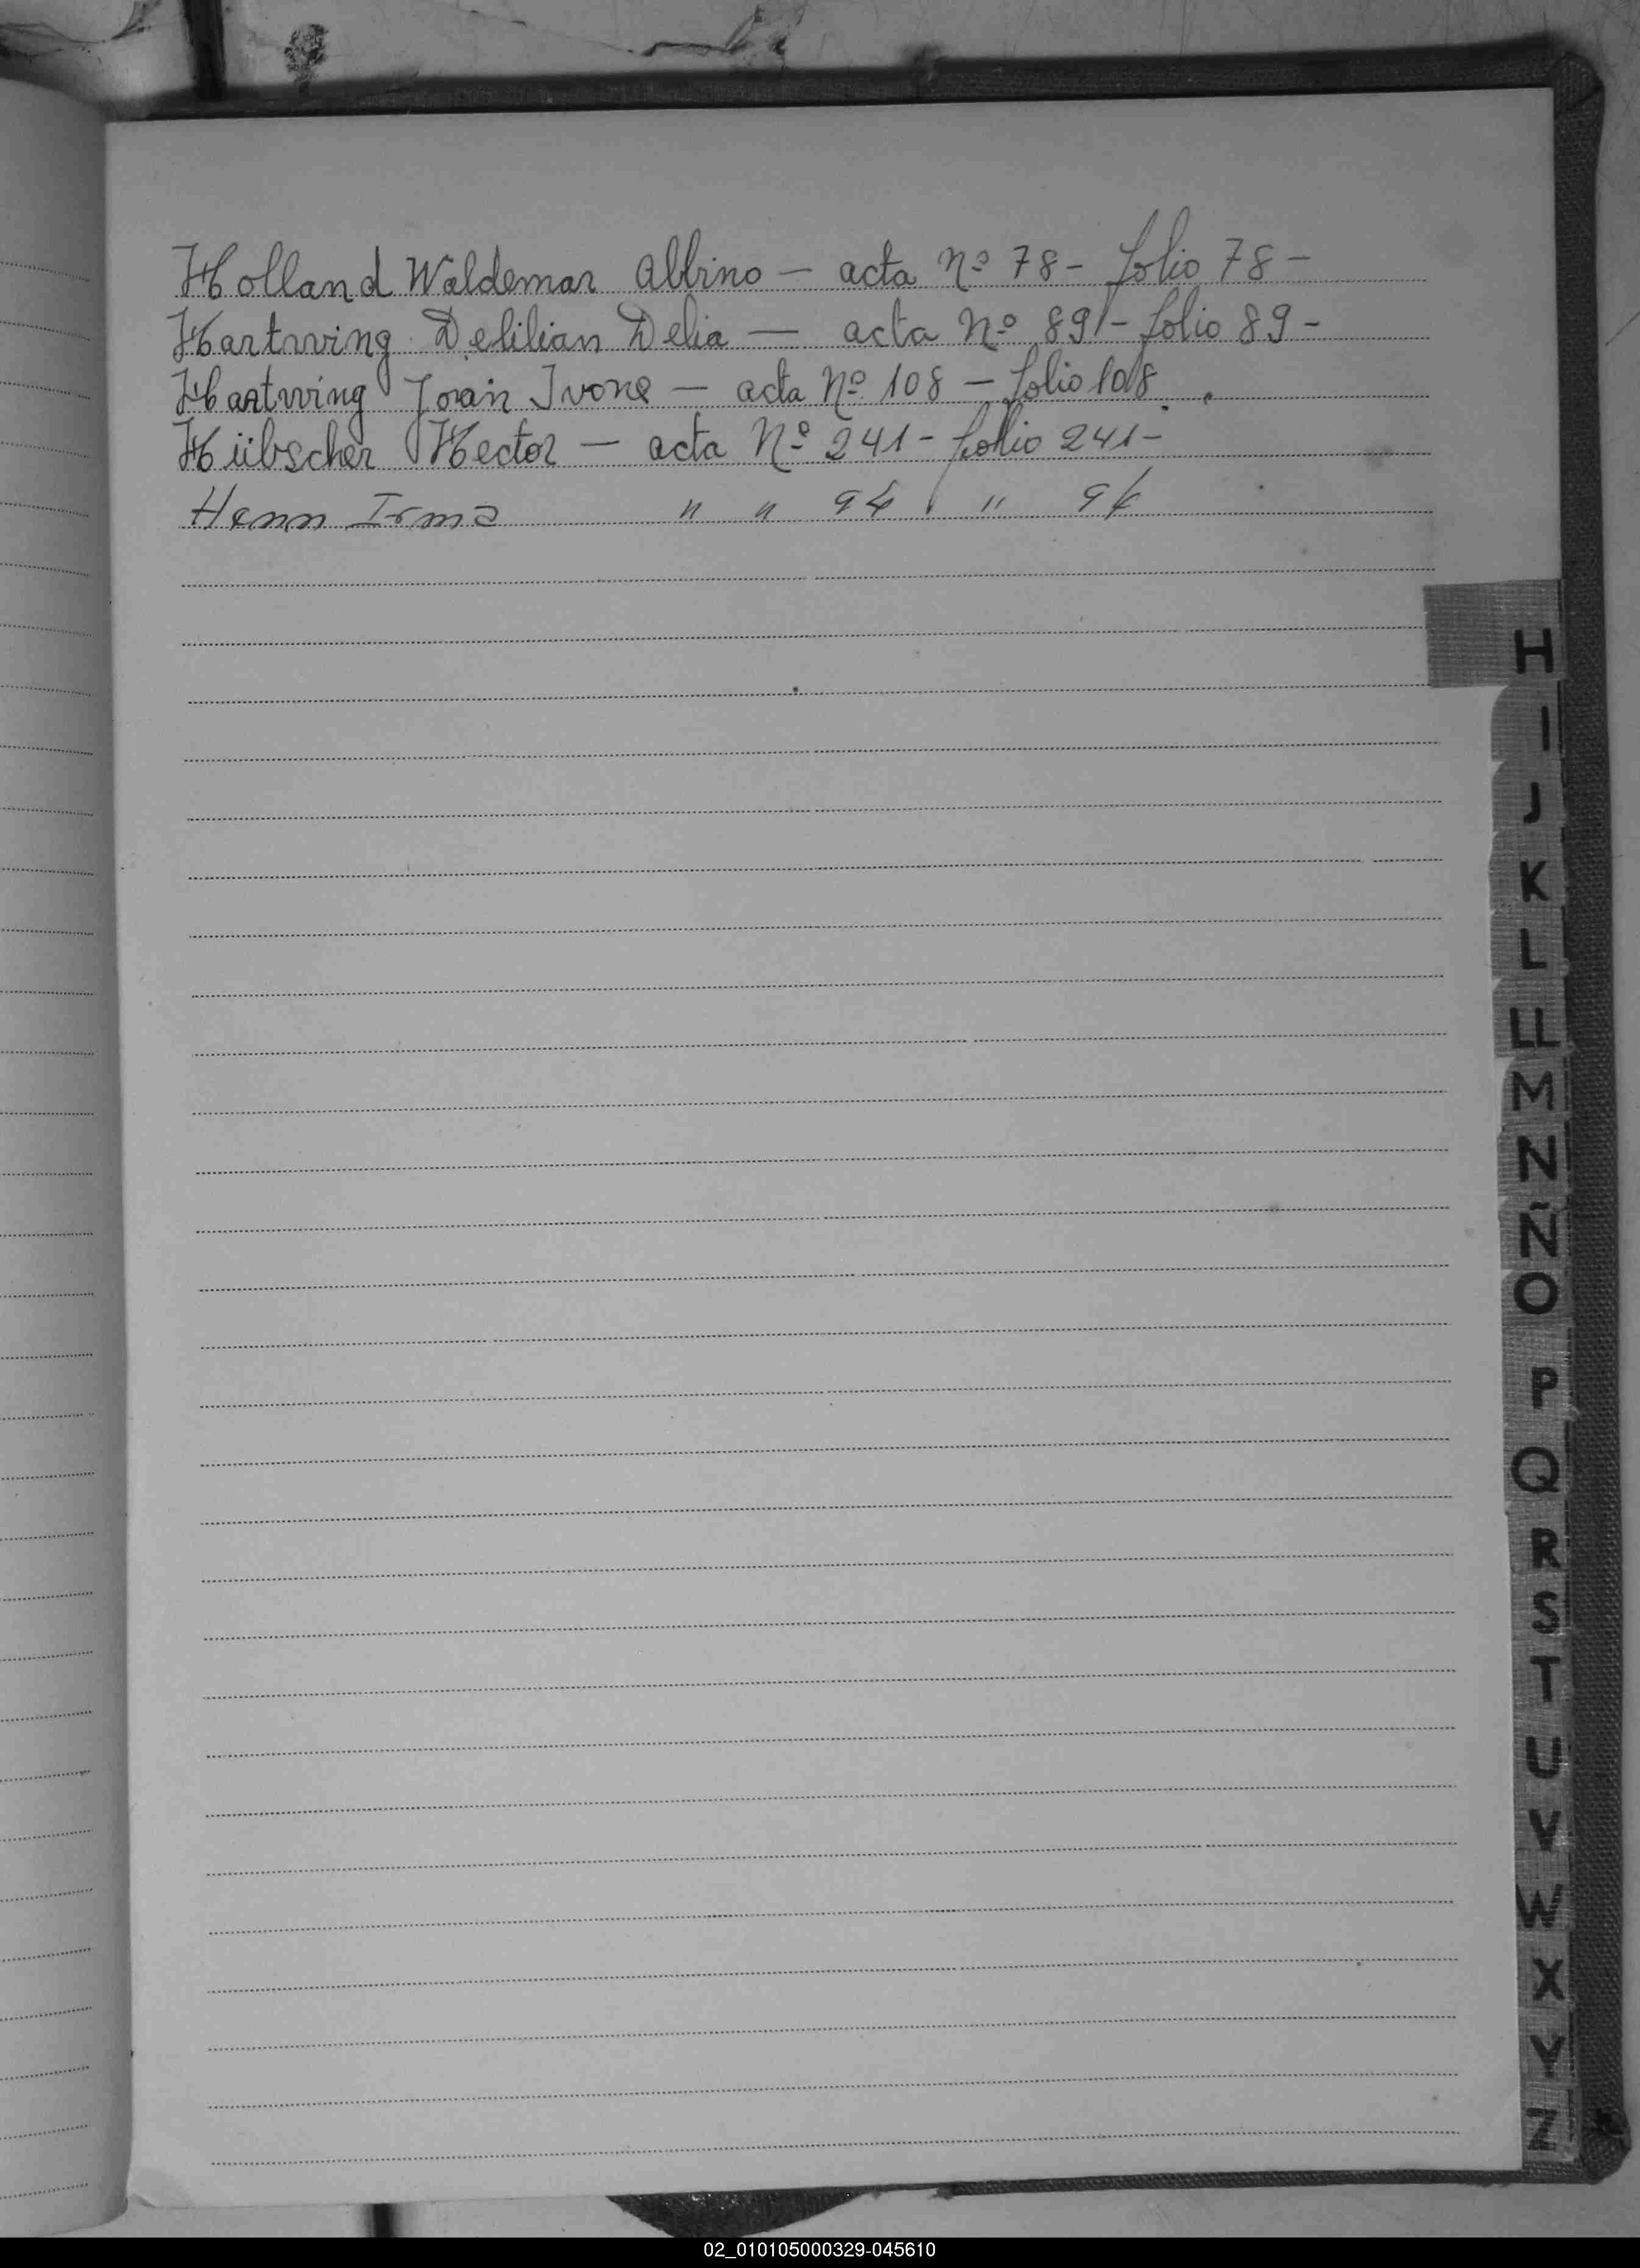 Holland Waldemar Albino — acta nº 78 - folio 78 -
Hartwing Delilian Delia — acta nº 89 - folio 89 -
Hartwing Ivone — acta nº 108 - folio 108
Hübscher Hector — acta Nº 241 - folio 241 -
Henn Irma " " 94 " 94
H
I
J
K
L
LL
M
N
Ñ
O
P
Q
R
S
T
U
V
W
X
Y
Z
02_010105000329-045610